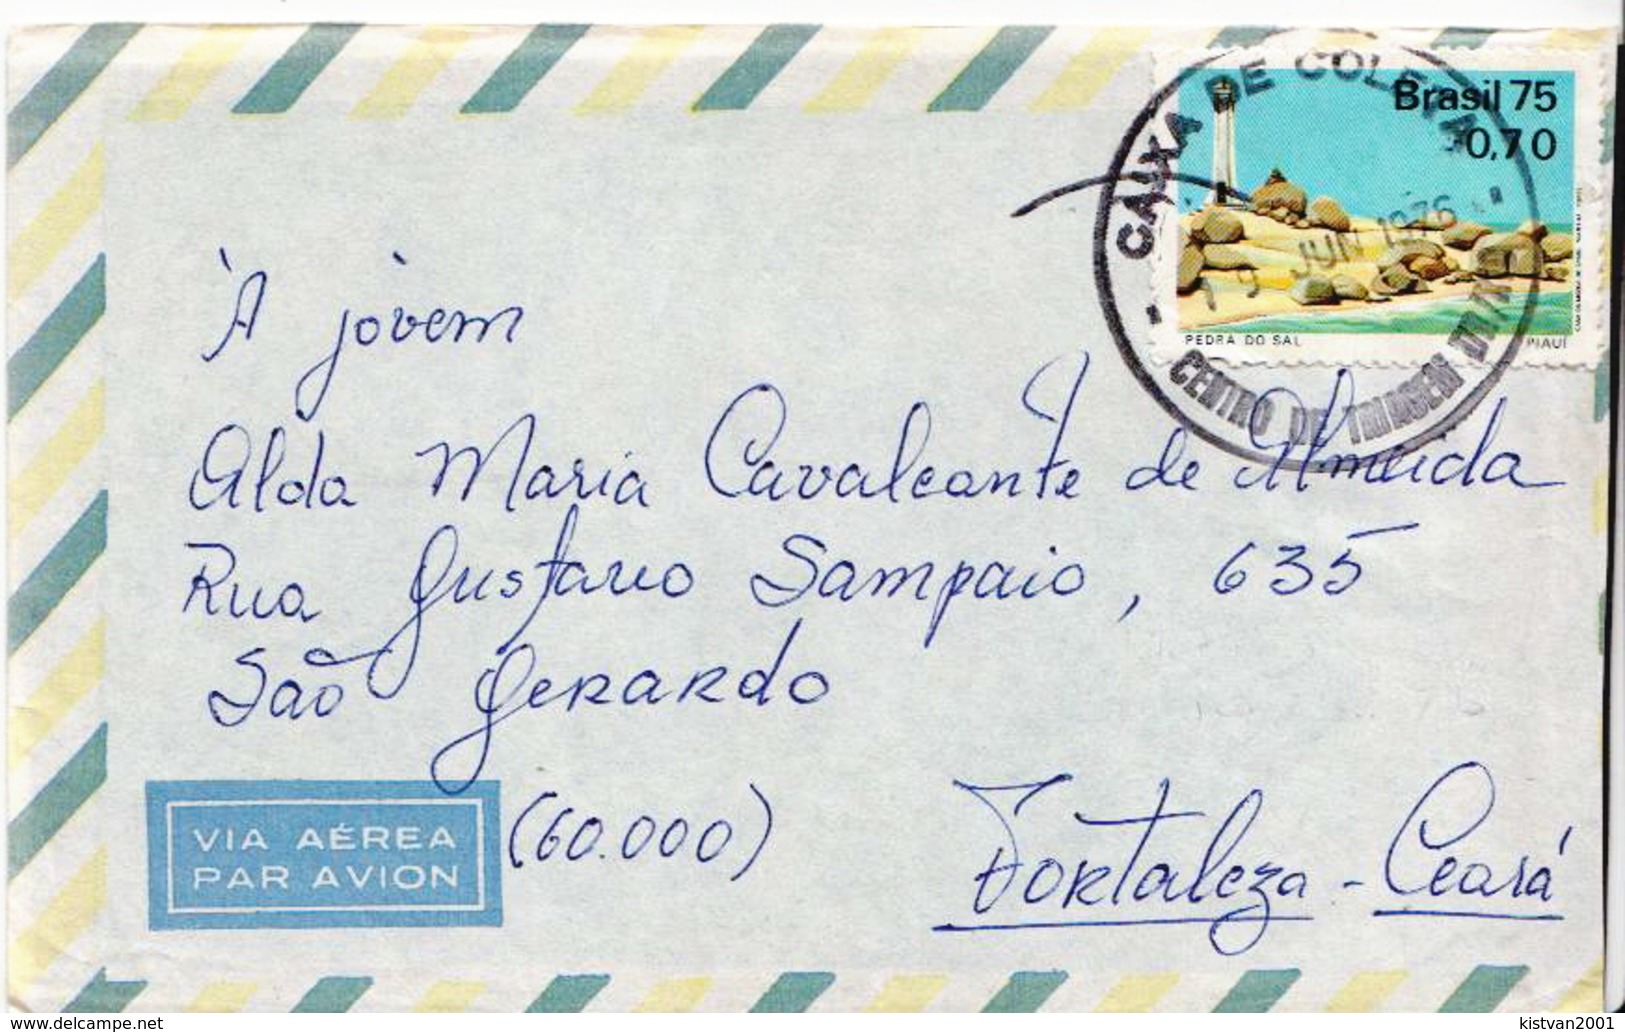 CAIXA DE COLETA
Brasil 75
0,70
19 JUN 1976
PEDRA DO SAL
PIAUÍ
CENTRO DE TRIAGEM
À jovem
Alda Maria Cavalcante de Almeida
Rua Gustavo Sampaio, 635
São Gerardo
VIA AÉREA
PAR AVION
(60.000)
Fortaleza - Ceará
www.delcampe.net
kistvan2001